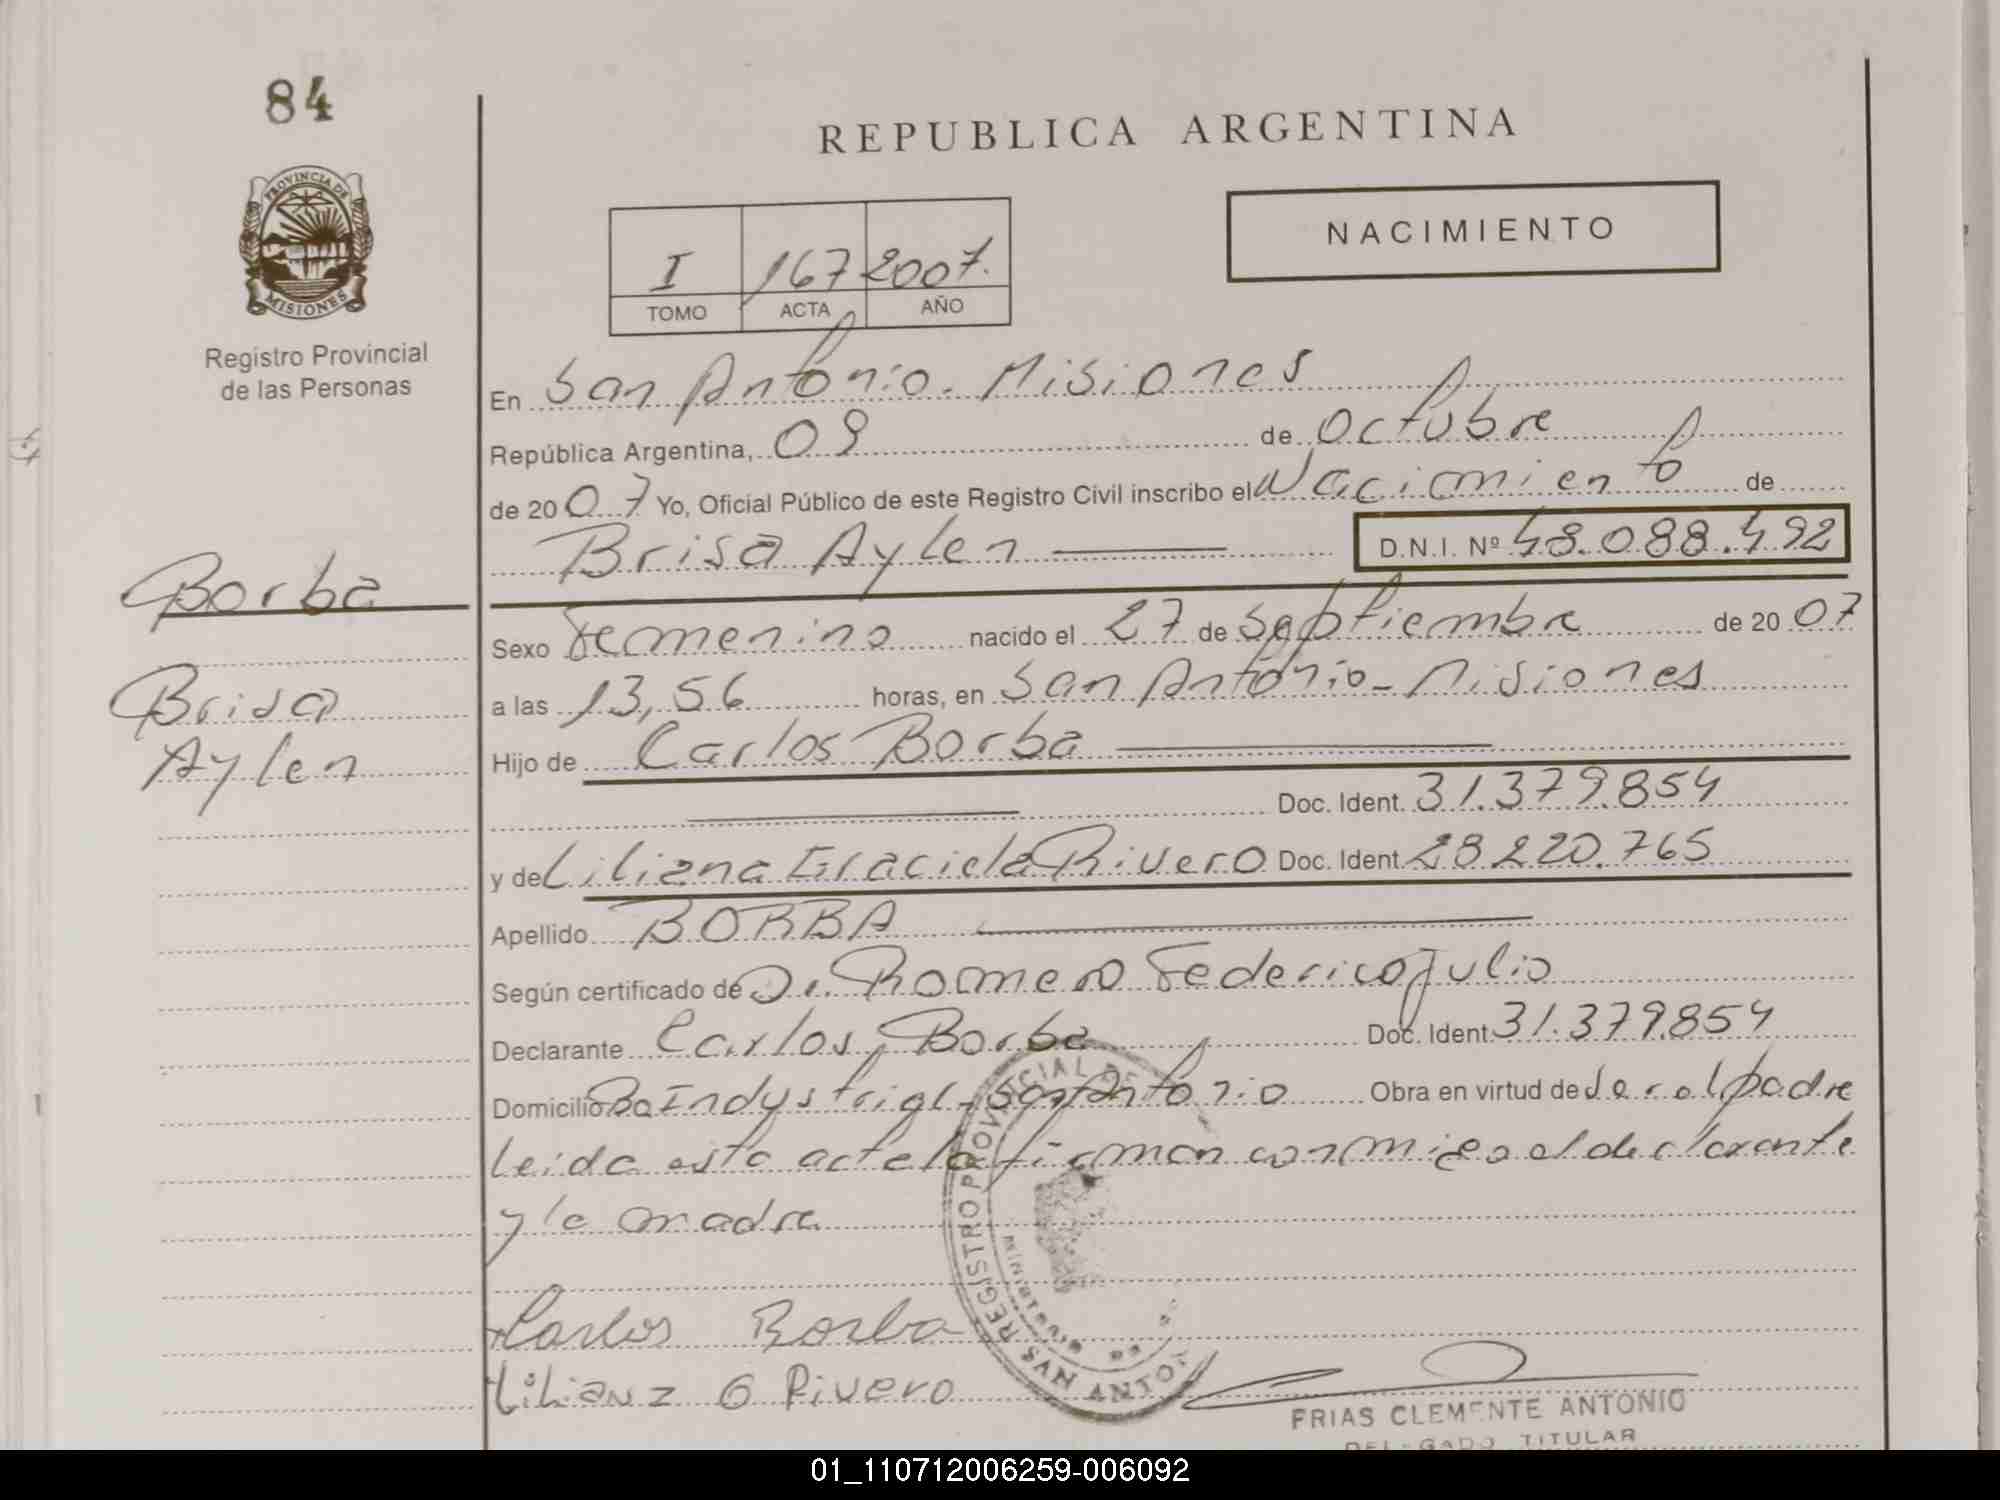 84
PROVINCIA DE
MISIONES
Registro Provincial
de las Personas
REPUBLICA ARGENTINA
NACIMIENTO
I 167 2007.
TOMO ACTA AÑO
En San Antonio - Misiones
República Argentina, 09 de Octubre
de 2007 Yo, Oficial Público de este Registro Civil inscribo el Nacimiento de
Brisa Aylen D.N.I. Nº 48.088.492
Borba
Sexo Femenino nacido el 27 de Septiembre de 2007
Brisa
a las 13,56 horas, en San Antonio - Misiones
Aylen
Hijo de Carlos Borba
Doc. Ident. 31.379.854
y de Liliana Graciela Rivero Doc. Ident. 28.220.765
Apellido BORBA
Según certificado de Dr. Romero Federico Julio
Declarante Carlos Borba Doc. Ident. 31.379.854
Domicilio Bo Industrial - San Antonio Obra en virtud de ser el padre
Leida esta acta la firman conmigo el declarante
y la madre
Carlos Borba
Liliana G Rivero
REGISTRO PROVINCIAL DE
SAN ANTO
FRIAS CLEMENTE ANTONIO
DELEGADO TITULAR
01_110712006259-006092